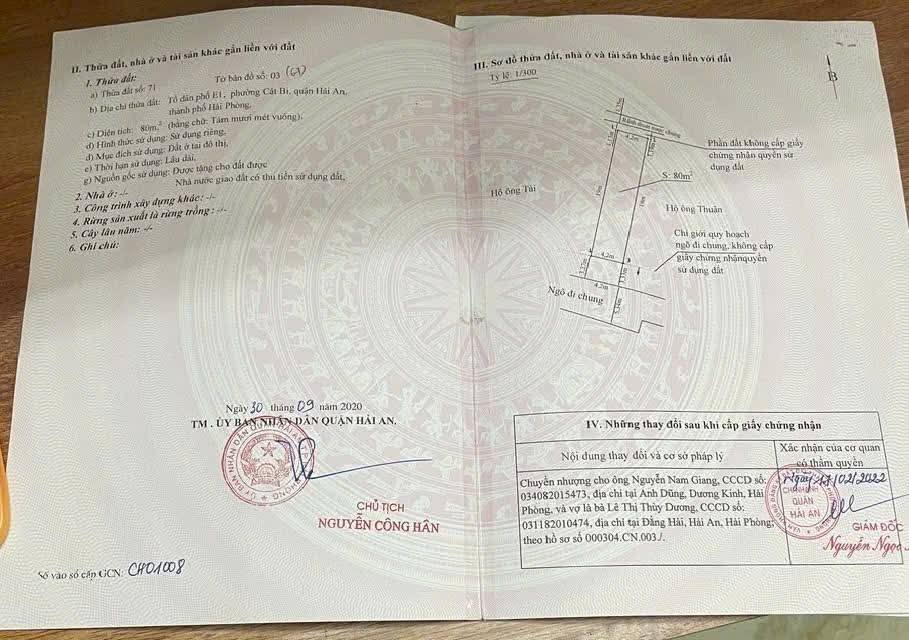 II. Thửa đất, nhà ở và tài sản khác gắn liền với đất
1. Thửa đất:
a) Thửa đất số: 71 Tờ bản đồ số: 03 (G1)
b) Địa chỉ thửa đất: Tổ dân phố E1, phường Cát Bi, quận Hải An,
thành phố Hải Phòng,
c) Diện tích: 80m², (bằng chữ: Tám mươi mét vuông),
d) Hình thức sử dụng: Sử dụng riêng,
đ) Mục đích sử dụng: Đất ở tại đô thị,
e) Thời hạn sử dụng: Lâu dài,
g) Nguồn gốc sử dụng: Được tặng cho đất được
Nhà nước giao đất có thu tiền sử dụng đất,
2. Nhà ở: -/-
3. Công trình xây dựng khác: -/-
4. Rừng sản xuất là rừng trồng: -/-
5. Cây lâu năm: -/-
6. Ghi chú:
Ngày 30 tháng 09 năm 2020
TM. ỦY BAN NHÂN DÂN QUẬN HẢI AN.
CHỦ TỊCH
NGUYỄN CÔNG HÂN
Số vào sổ cấp GCN: CH01008
III. Sơ đồ thửa đất, nhà ở và tài sản khác gắn liền với đất
Tỷ lệ: 1/300
B
Rãnh thoát nước chung
4,2m
Phần đất không cấp giấy
chứng nhận quyền sử
dụng đất
S: 80m²
19m
19m
Hộ ông Tài
Hộ ông Thuân
Chỉ giới quy hoạch
ngõ đi chung, không cấp
giấy chứng nhận quyền
sử dụng đất
4,2m
4,2m
Ngõ đi chung
IV. Những thay đổi sau khi cấp giấy chứng nhận
Nội dung thay đổi và cơ sở pháp lý
Xác nhận của cơ quan
có thẩm quyền
Chuyển nhượng cho ông Nguyễn Nam Giang, CCCD số:
034082015473, địa chỉ tại Anh Dũng, Dương Kinh, Hải
Phòng, và vợ là bà Lê Thị Thùy Dương, CCCD số:
031182010474, địa chỉ tại Đằng Hải, Hải An, Hải Phòng;
theo hồ sơ số 000304.CN.003./.
Ngày 17/02/2022
CHI NHÁNH
QUẬN
HẢI AN
GIÁM ĐỐC
Nguyễn Ngọc